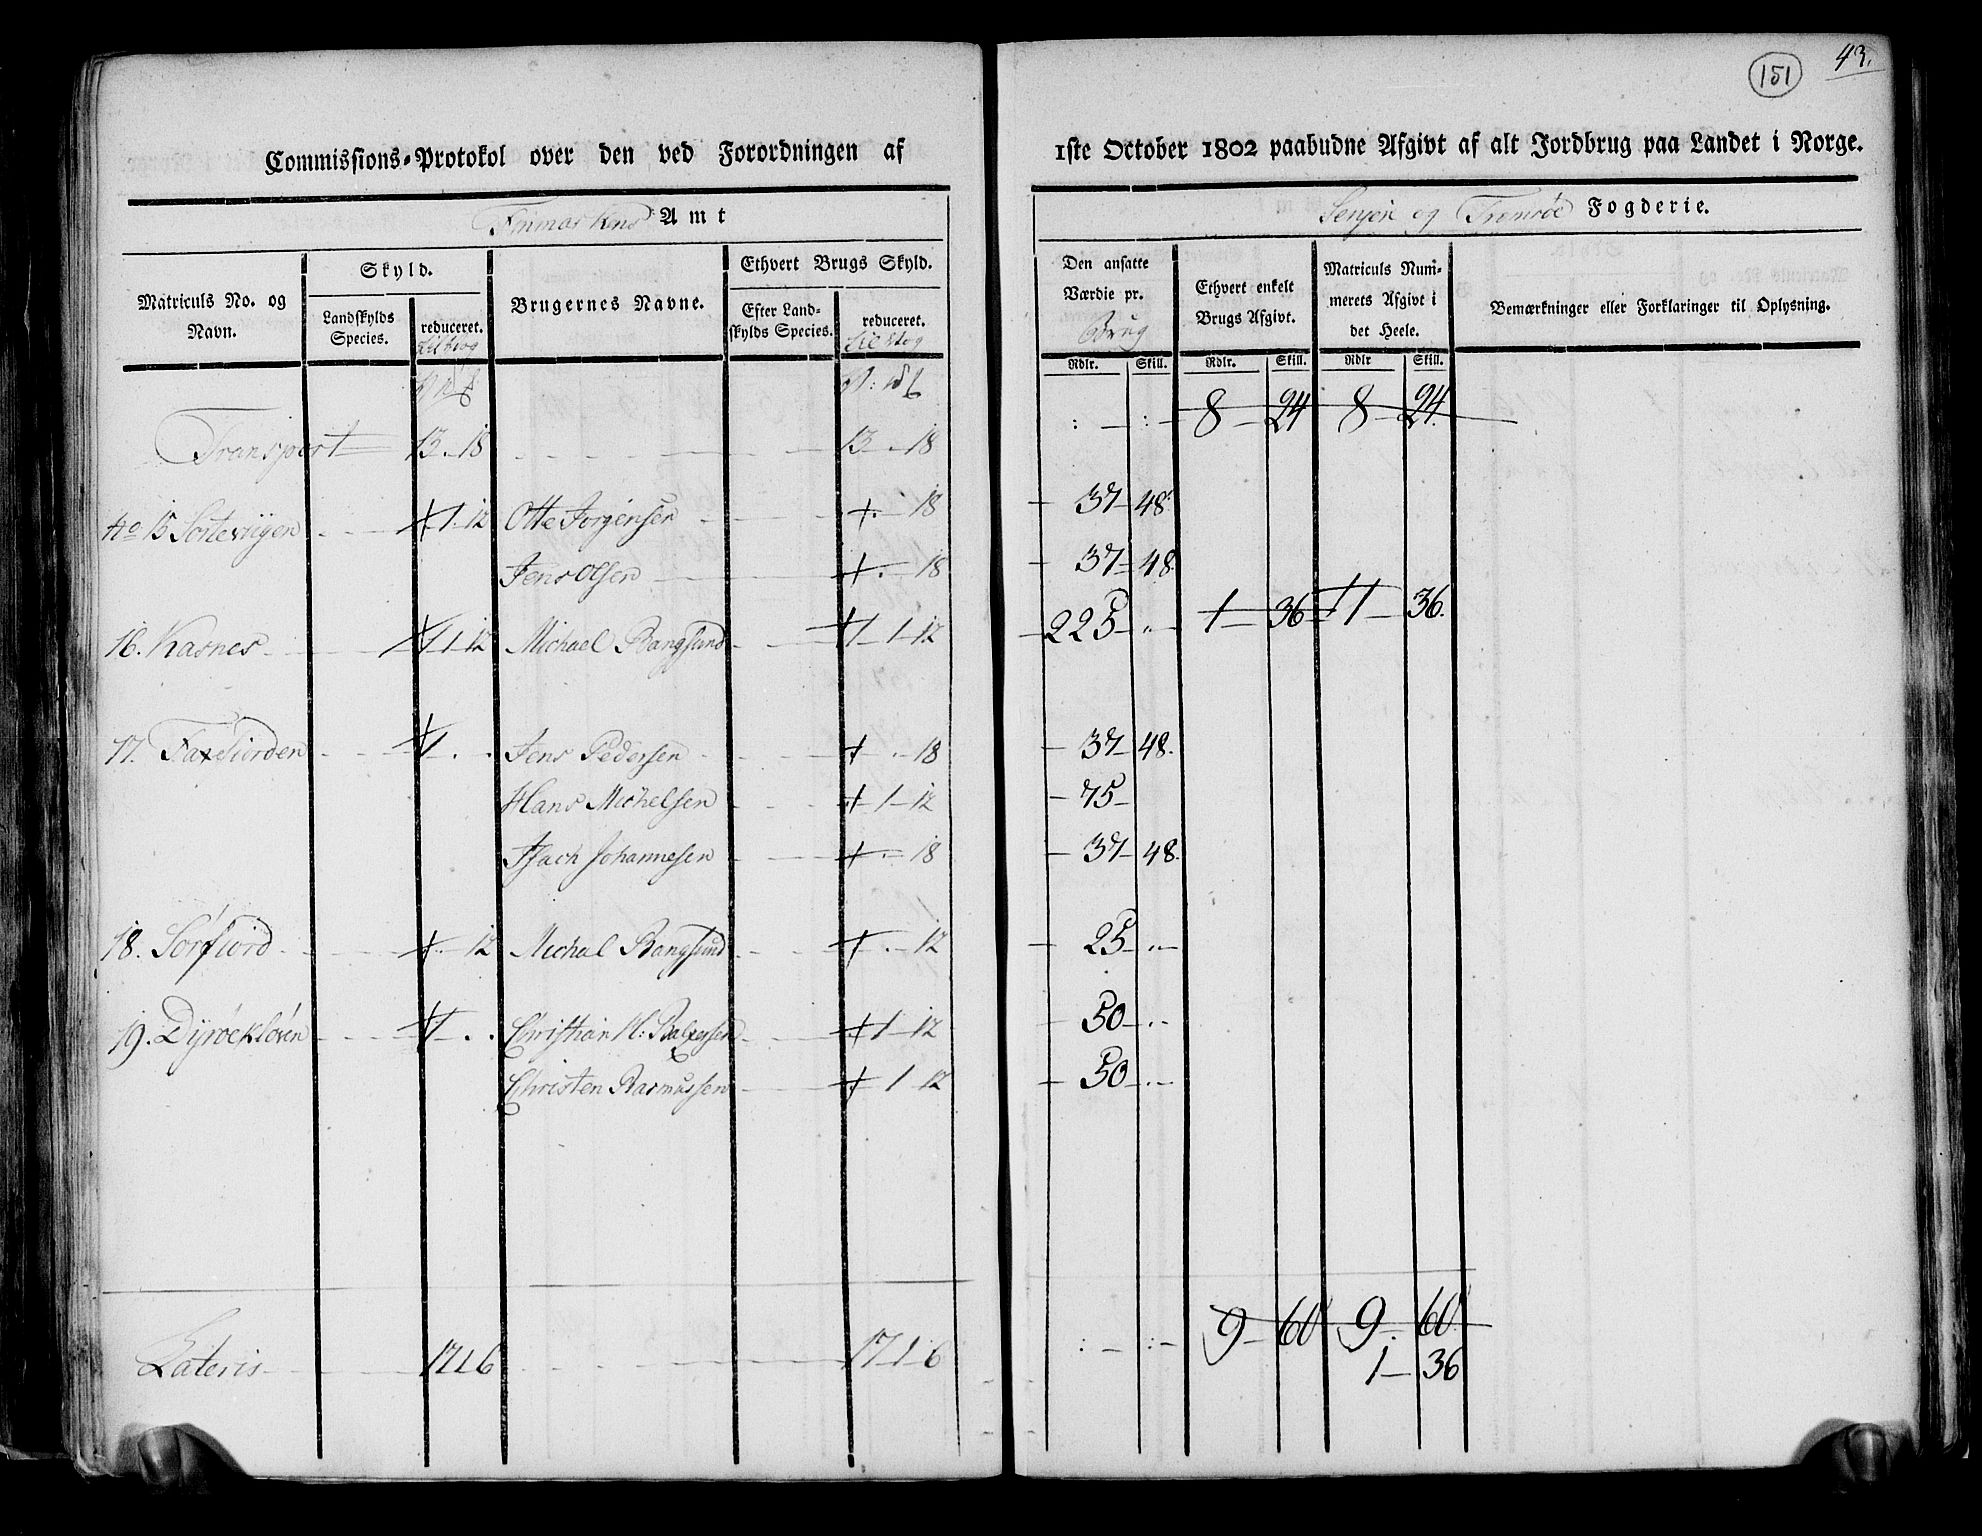 151
43.
Commissions-Protokol over den ved Forordningen af 1ste October 1802 paabudne Afgivt af alt Jordbrug paa Landet i Norge.
Finmarkens Amt
Senjen og Tromsöe Fogderie.
Matriculs No. og Navn.
Skyld.
Landskylds Species.
reduceret.
Brugernes Navne.
Ethvert Brugs Skyld.
Efter Landskylds Species.
reduceret.
Den ansatte Værdie pr. Brug
Ethvert enkelt Brugs Afgivt.
Matriculs Nummerets Afgivt i det Heele.
Bemærkninger eller Forklaringer til Oplysning.
Rdlr. Skill. Rdlr. Skill. Rdlr Skill.
Transport 13 - 18 13 - 18 : - : - 8 - 24 8 - 24
No 15 Sortevigen 1 - 12 Otte Jorgensen - 18 - 37 - 48
Jens Olsen - 18 - 37 - 48
16. Kasnes 1 - 12 Michael Bangsund 1 - 12 - 225 - 1 - 36 1 - 36.
17. Faxfiorden Jens Pedersen - 18 - 37 - 48.
Hans Michelsen 1 - 12 - 75 -
Isach Johannesen - 18 - 37 - 48.
18. Sörfiord - 12 Michal Bangsund - 12 - 25 -
19. Dyröeklöven Christian H: Balzersen 1 - 12 - 50 -
Christen Rasmussen 1 - 12 - 50 -
Lateris 17 1 6 17 - 1 - 6 : - : - 9 - 60 9 - 60
1 - 36